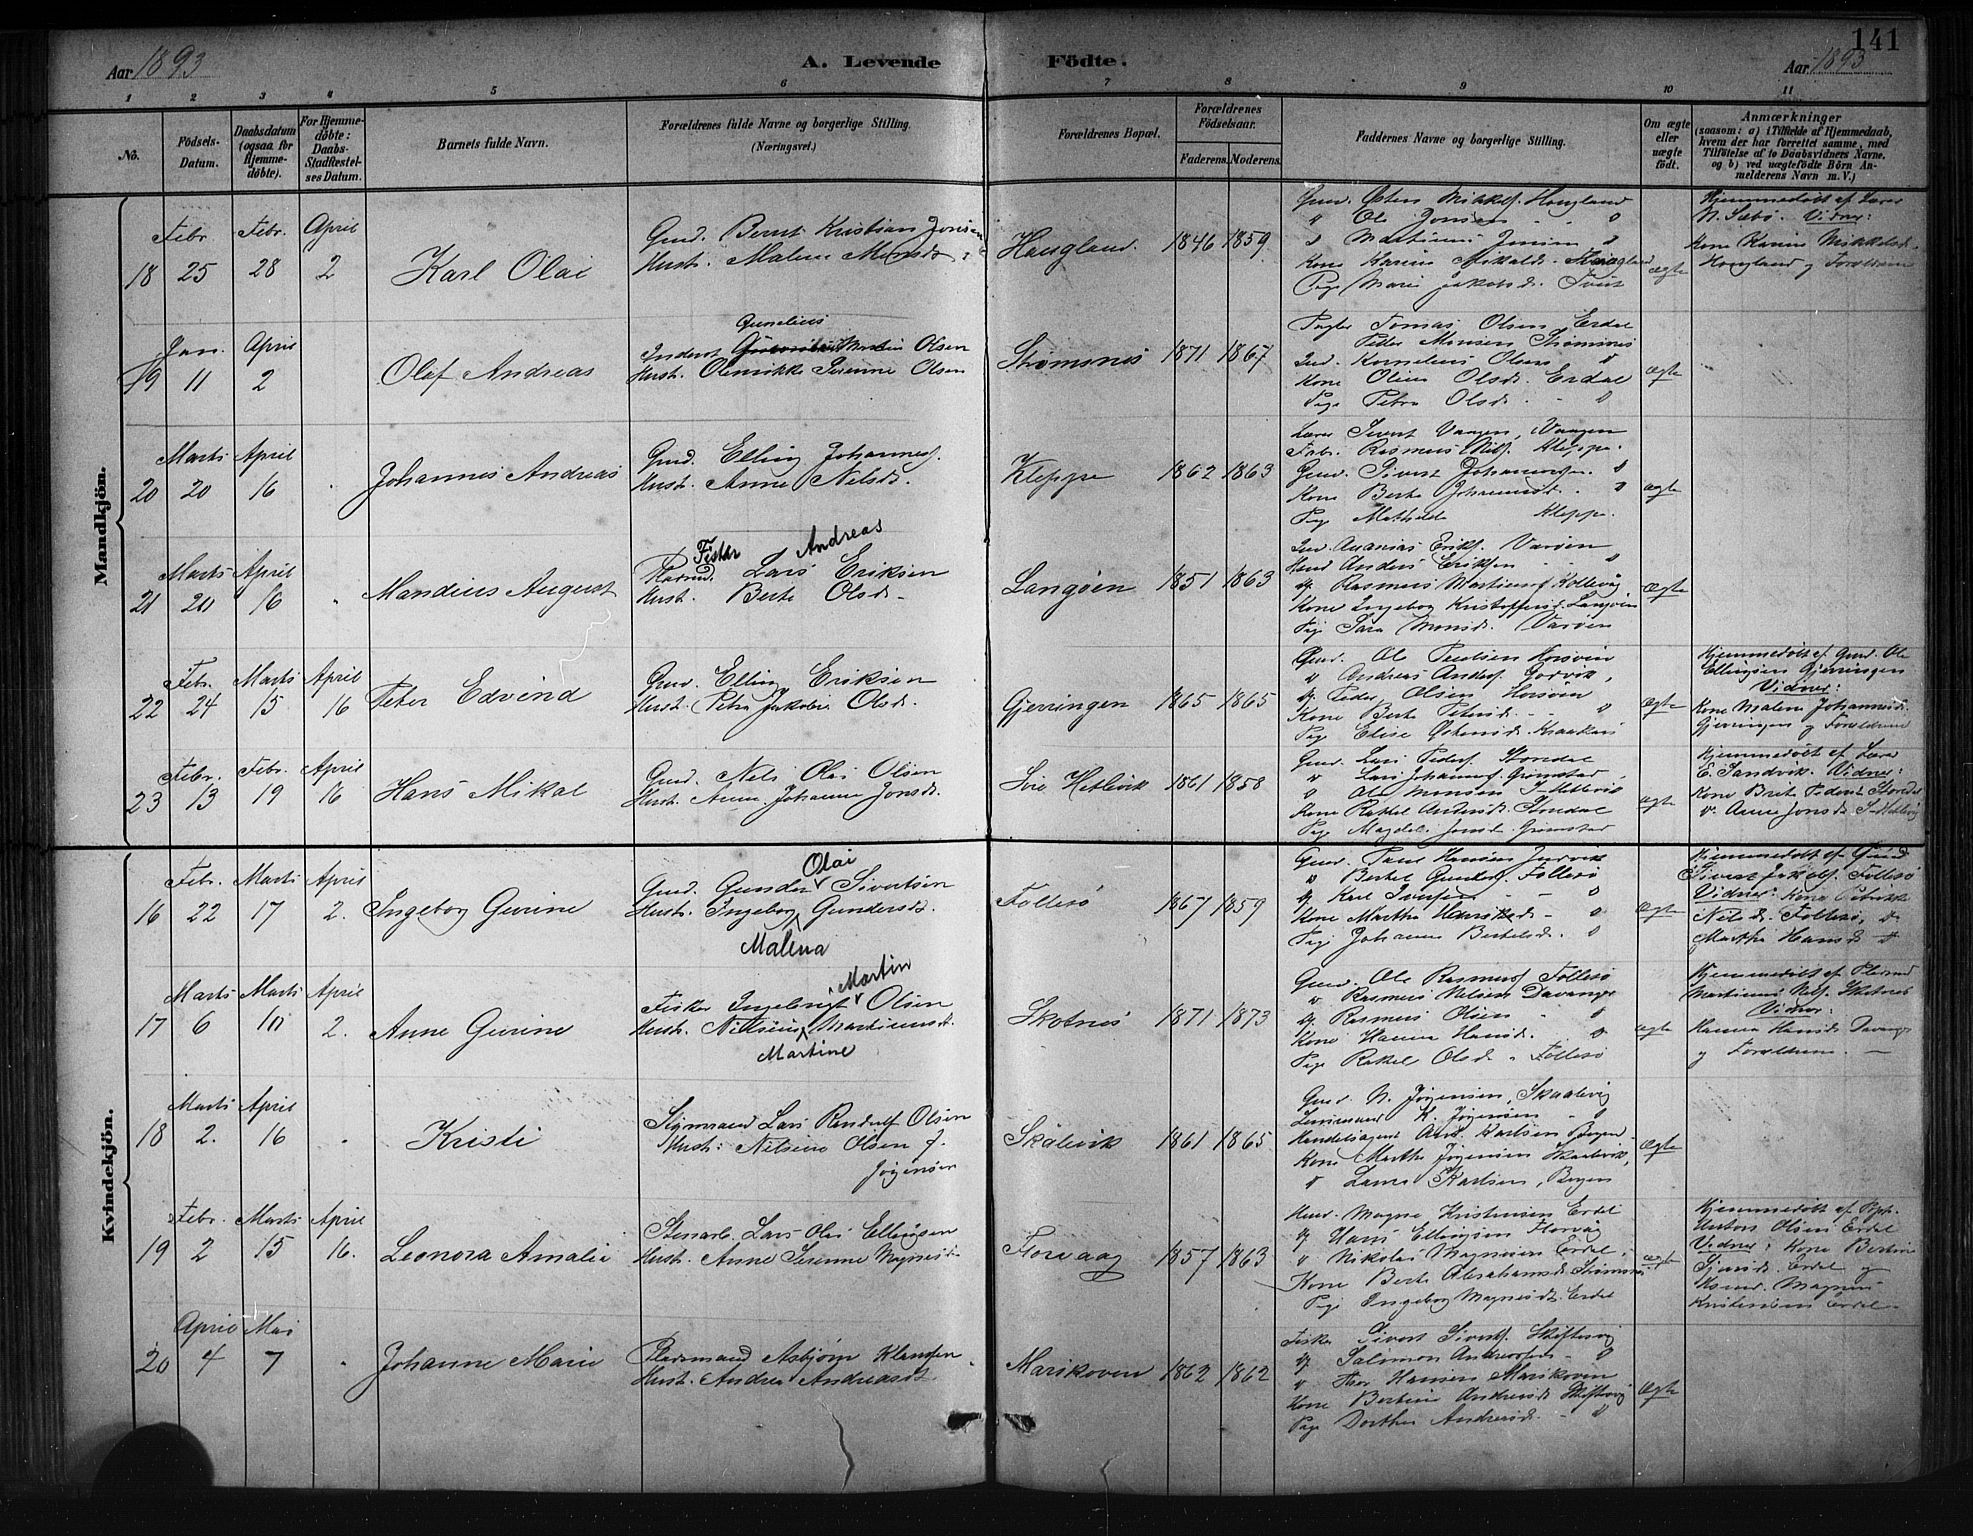 141
Aar 1893
A. Levende Födte.
Aar 1893
1 2 3 4 5 6 7 8 9 10 11
No.
Födsels-Datum.
Daabsdatum (ogsaa for Hjemme-döbte).
For Hjemme-döbte: Daabs-Stadfæstel-ses Datum.
Barnets fulde Navn.
Forældrenes fulde Navne og borgerlige Stilling. (Næringsvei.)
Forældrenes Bopæl.
Forældrenes Födselsaar.
Faderens. Moderens.
Faddernes Navne og borgerlige Stilling.
Om ægte eller uægte födt.
Anmærkninger
(saasom: a) i Tilfælde af Hjemmedaab, hvem der har forrettet samme, med Tilföielse af to Daabsvidners Navne, og b) ved uægtefödte Börn An-melderens Navn m. V.)
Mandkjön.
18
Febr. 25
Febr. 28
April 2
Karl Olai
Gmd. Bernt Kristian Jonsen
Hustr. Malene Monsd.
Haugland.
1846 1859
Gmd. Østen Mikkels. Hougland
" Ole Jonsen - "
Kone Karen Mikalsd. Haugland
Pige Mari Jakobsd. Tveit
ægte
Hjemmedöbt af Lærer
N. Sæbö. Vidner:
Kone Karen Mikkelsd.
Hougland og Forældrene
19
Jan. 11
April 2
Olaf Andreas
Gunelius
Inderst Martin Olsen
Hustr. Olenrikke Serinne Olsen
Strømsnes
1871 1867
Tomas Olsen Erdal
Peder Monsen Strømsnes
Ind. Kornelius Olsen "
Kone Oline Olsd. Erdal
Pige Petra Olsd. - "
ægte
20
Marts 20
April 16
Johannes Andreas
Gmd. Elling Johannes.
Hustr. Anne Nelsd.
Kleppe
1862 1863
Lærer Sivert Vaagen, Vaagen
Rasmus Nils. Kleppe.
Gmd. Sivert Johannes. "
Kone Berta Johannesd. "
Pige Mathilda Kleppe.
ægte
21
Marts 20
April 16
"
Mandius August
Fisker Lars Andreas Eriksen
Hustr. Berta Olsd.
Langøen
1851 1863
Ind. Ananias Eriks. Varøen
Anders Eriksen "
Rasmus Martinus. Kollevåg
Kone Ingeborg Kristoffersd. Langøen
Pige Sara Monsd. Varøen
ægte
22
Febr. 24
Marts 15
April 16
Peter Edvind
Gmd. Elling Eriksen
Hustr. Petra Jakobea Olsd.
Gjerringen
1865 1865
Gmd. Ole Paulsen Horsöen
" Andreas Anders.
Peder Olsen Horsöen
Kone Berta Petersd. - "
Pige Elise Østensd. Kraakaas
ægte
Hjemmedöbt af Gmd. Ole
Ellingsen Gjerringen
Vidner:
Kone Malene Johannesd.
Gjerringen og Forældrene
23
Febr. 13
Febr. 19
April 16
Hans Mikal
Gmd. Nels Olai Olsen
Hustr. Anne Johanne Jonsd.
Ivre Hetlevik
1861 1858
Gmd. Lars Peders. Storedal
" Lars Johannes. Grimstad
" Ole Monsen I-Hetlevik
Kone Rakel Andersd. Storedal
Pige Magdela Jonsd. Grimstad
ægte
Hjemmedöbt af Lærer
E. Sandvik. Vidner:
Kone Brita Pedersd. Storedal
og Anne Jonsd. I-Hetlevig
Kvindekjön.
16
Febr. 22
Marts 17
April 2.
Ingeborg Gurine
Gmd. Gunder Olai Sivertsen
Hustr. Ingeborg Malena Gundersd.
Follesö
1867 1859
Gmd. Paul Hansen
" Bertel Gunders. Follesö
Karl Iversen "
Kone Martha Henrikkesd. - "
Pige Johanne Bertelsd. "
ægte
Hjemmedöbt af Gmd.
Sivert Jakobs. Follesö
Vidner: Kone Petrikke
Nelsd. Follesö, og
Martha Hansd. "
17
Marts 6
Marts 10
April 2.
Anne Gurine
Fisker Ingebrigt Martin Olsen
Hustr. Nilsine Martine Martinusd.
Skotnes
1871 1873
Gmd. Ole Rasmus. Follesö
" Rasmus Nilsen Davanger
Rasmus Olsen "
Kone Hanna Hansd. "
Pige Rakel Olsd. " Follesö
ægte
Hjemmedöbt af Pladsmd
Martinus Nels. Skotnes
Vidner:
Hanna Hansd. Davanger
og Forældrene. —
18
Marts 2.
April 16
"
Kristi
Styrmand Lars Randulf Olsen
Hustr: Nelsine Olsen f.
Jørgensen
Skålevik
1861 1865
Gmd. N. Jørgensen, Skaalevig
Lensmand K. Jørgensen - "
Handelsagent And. Karlsen Bergen
Kone Martha Jørgensen Skaalevik,
" Laura Karlsen, Bergen
ægte
19
Febr. 2
Marts 15
April 16.
Leonora Amalie
Stenarb. Lars Olai Ellingsen
Hustr. Anne Serinne Magnesd.
Florvaag
1857 1863
Magne Kristensen Erdal
Hans Ellingsen Florvåg
" Nikolai Magnesen Erdal
Kone Berta Abrahamsd. Strømsnes
Pige Ingeborg Magnesd. Erdal
ægte
Hjemmedöbt af
Anton Olsen Erdal
Vidner: Kone Bertine
Erdal og
Magne
Kristensen Erdal
20
April 4
Mai 7
"
Johanne Marie
Pladsmand Asbjørn Klausen
Hustr. Andrea Andreasd.
Marikoven
1862 1862
Fisker Sivert Siverts. Skiftesvig
Salomon Andreassen - "
" Thor Hansen Marikoven
Kone Bertine Andersd. Skiftesvig
Pige Dorthea Andersd. - "
ægte